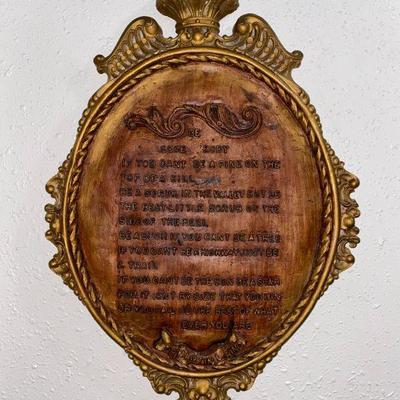 BE
SOME BODY
IF YOU CANT BE A PINE ON THE
TOP OF A HILL
BE A SCRUB IN THE VALLEY BUT BE
THE BEST LITTLE SCRUB ON THE
SIDE OF THE
BE A BUSH IF YOU CANT BE A TREE
IF YOU CANT BE A HIGHWAY JUST BE
A TRAIL
IF YOU CANT BE THE SUN BE A STAR
FOR IT ISNT BY SIZE THAT YOU WIN
OR YOU FAIL BE THE BEST OF WHAT
EVER YOU ARE